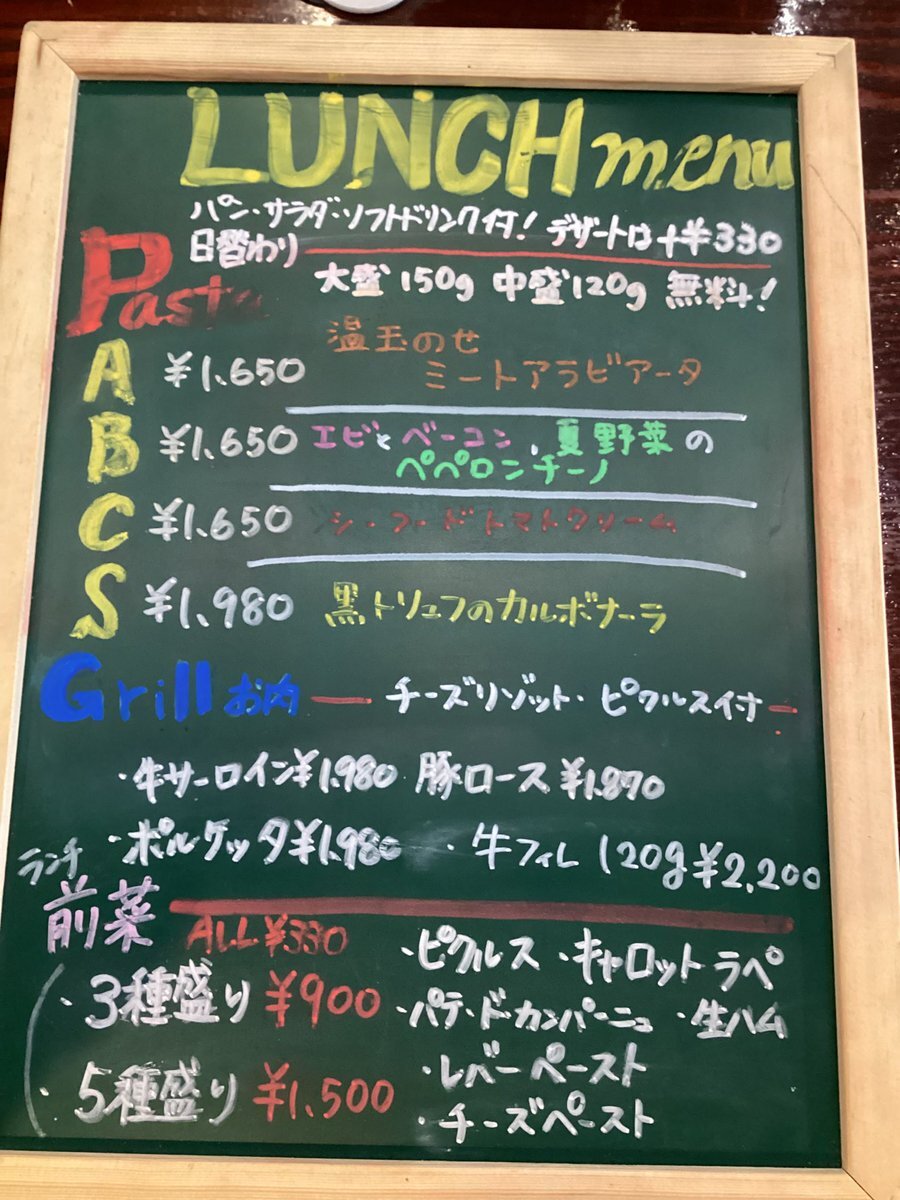 LUNCH menu
パン・サラダ・ソフトドリンク付! デザートは+¥330
日替わり
Pasta
大盛150g 中盛120g 無料!
A ¥1.650 温玉のせ
ミートアラビアータ
B ¥1.650 エビとベーコン、夏野菜の
ペペロンチーノ
C ¥1.650 シーフードトマトクリーム
S ¥1.980 黒トリュフのカルボナーラ
Grill お肉 ー チーズリゾット・ピクルス付 ー
・牛サーロイン¥1.980 豚ロース ¥1.870
・ポルケッタ¥1.980 ・牛フィレ 120g¥2,200
ランチ
前菜 ALL ¥330
・3種盛り ¥900
・5種盛り ¥1.500
・ピクルス ・キャロットラペ
・パテ・ド・カンパーニュ ・生ハム
・レバーペースト
・チーズペースト